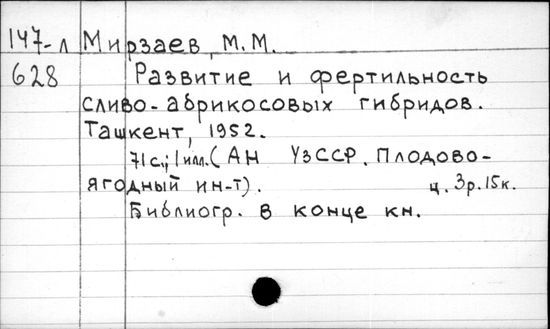 147-л Мирзаев, М.М.
628 Развитие и фертильность
сливо-абрикосовых гибридов.
Ташкент, 1952.
71с.; 1 илл. (АН УзССР. Плодово-
ягодный ин-т). ц. 3р.15к.
Библиогр. в конце кн.